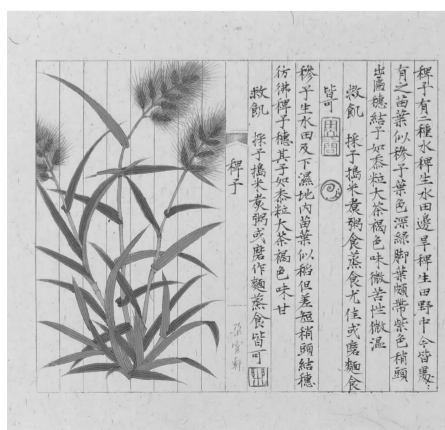 稗子有二種水稗生水田邊旱稗生田野中今皆處處
有之苗葉似穇子葉色深綠脚葉頗帶紫色稍頭
出匾穗結子如黍粒大茶褐色味微苦性微溫
救飢　採子搗米煮粥食蒸食尤佳或磨麵食
皆可
穇子生水田及下濕地內苗葉似稻但差短稍頭結穗
彷彿稗子穗其子如黍粒大茶褐色味甘
救飢　採子搗米煮粥或磨作麵蒸食皆可
稗子